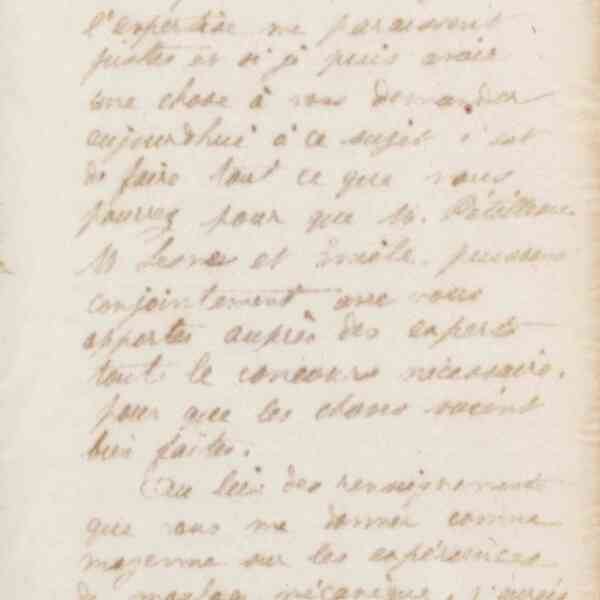 l'expertise me paraissent
justes et si je puis avoir
une chose à vous demander
aujourdhui à ce sujet c'est
de faire tout ce que vous
pourrez pour que M.
M Lesne et Emile puissent
conjointement avec vous
apporter auprès des experts
tout le concours nécessaire,
pour que les choses soient
bien faites.
Au lieu des renseignements
que vous me donnez comme
moyenne sur les expériences
de moulage mécanique, j'aurais